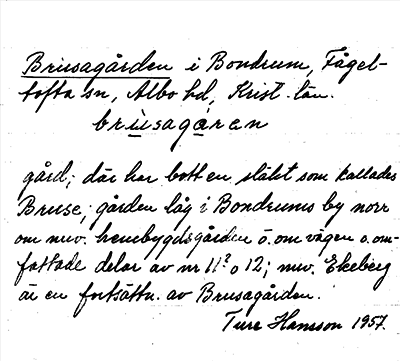 Brusagården i Bondrum, Fågel-
tofta sn, Albo hd, Krist. län.
brùsagạren
gård; där har bott en släkt som kallades
Bruse; gården låg i Bondrums by norr
om nuv. hembygdsgården ö. om vägen o. om-
fattade delar av nr 11² o 12; nuv. Ekeberg
är en fortsättn. av Brusagården.
Ture Hansson 1957.